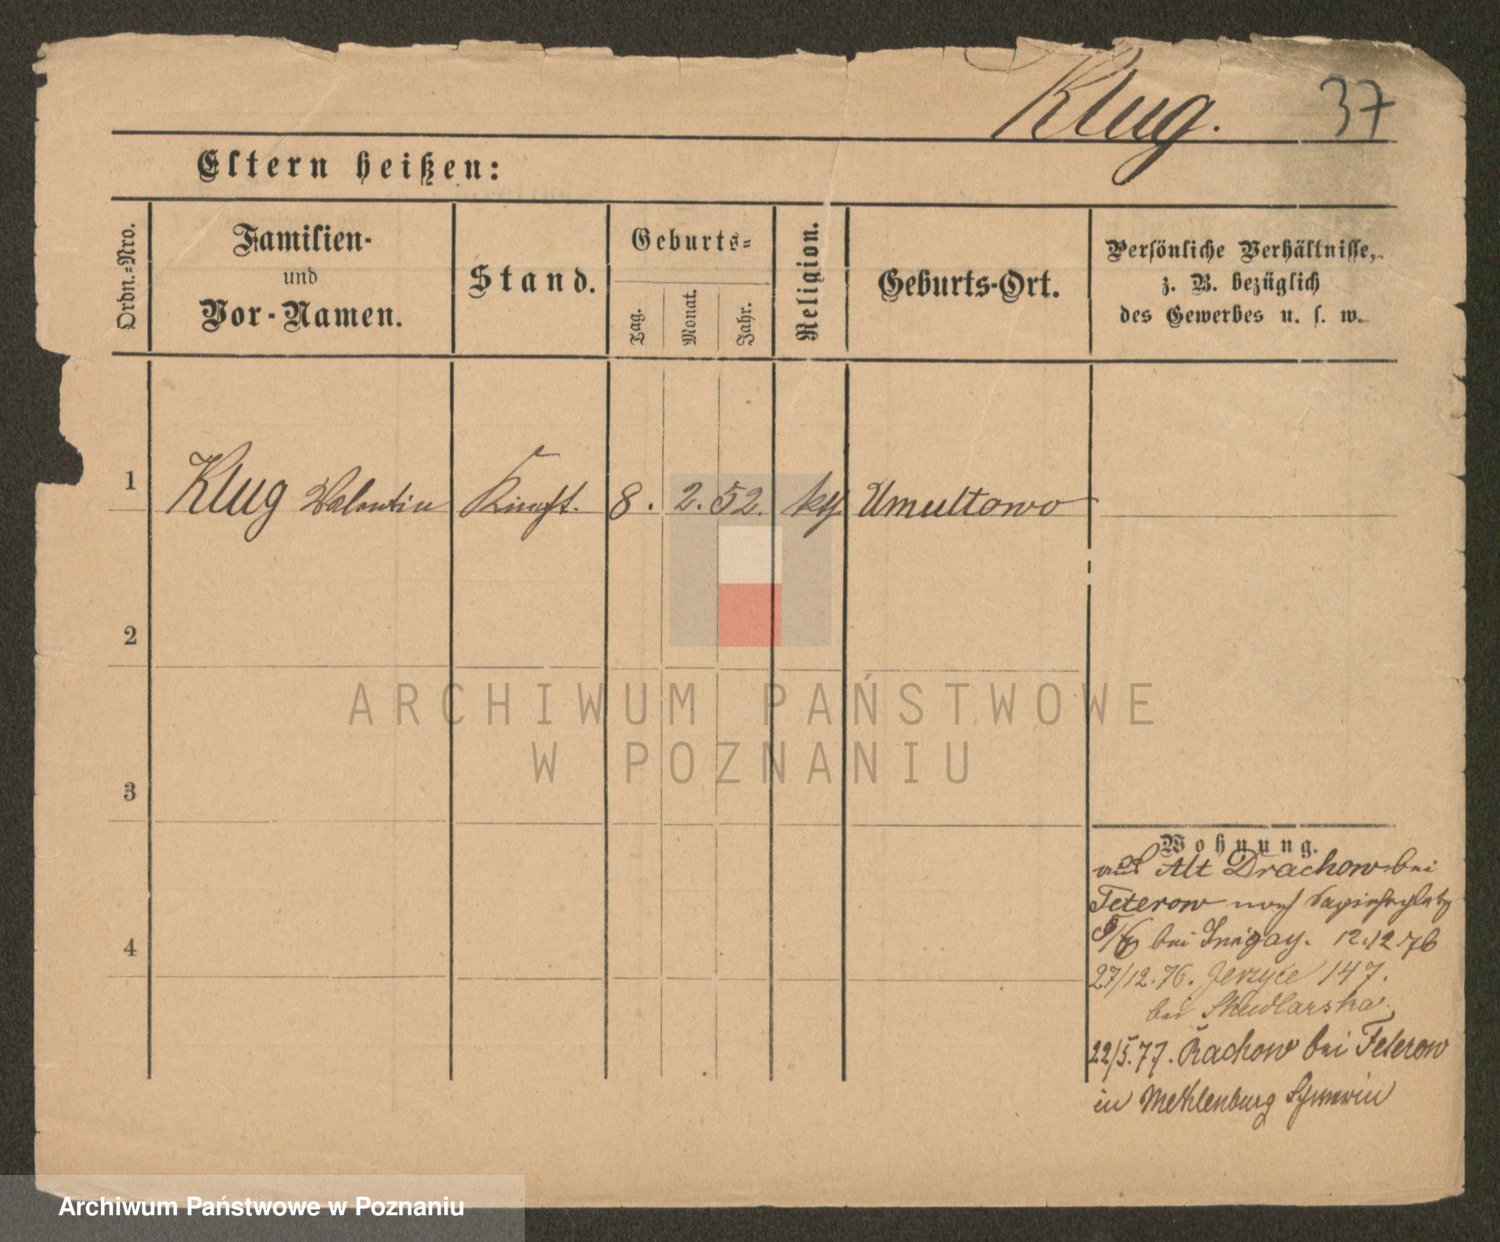 Klug. 37
Eltern heißen:
Ordn.-Nro.
Familien-
und
Vor-Namen.
Stand.
Geburts-
Tag.
Monat.
Jahr.
Religion.
Geburts-Ort.
Persönliche Verhältnisse,
z. B. bezüglich
des Gewerbes u. s. w.
1 Klug Valentin 8. 2. 52. kth Umultowo
2
3
4
ARCHIWUM PAŃSTWOWE
W POZNANIU
Wohnung.
Alt Drachow bei
Teterow nach Sapiehaplatz
bei 12.12 76
27/12. 76. Jerzyce 147.
bei Skudlarska.
22/5. 77. Rachow bei Teterow
in Meklenburg
Archiwum Państwowe w Poznaniu